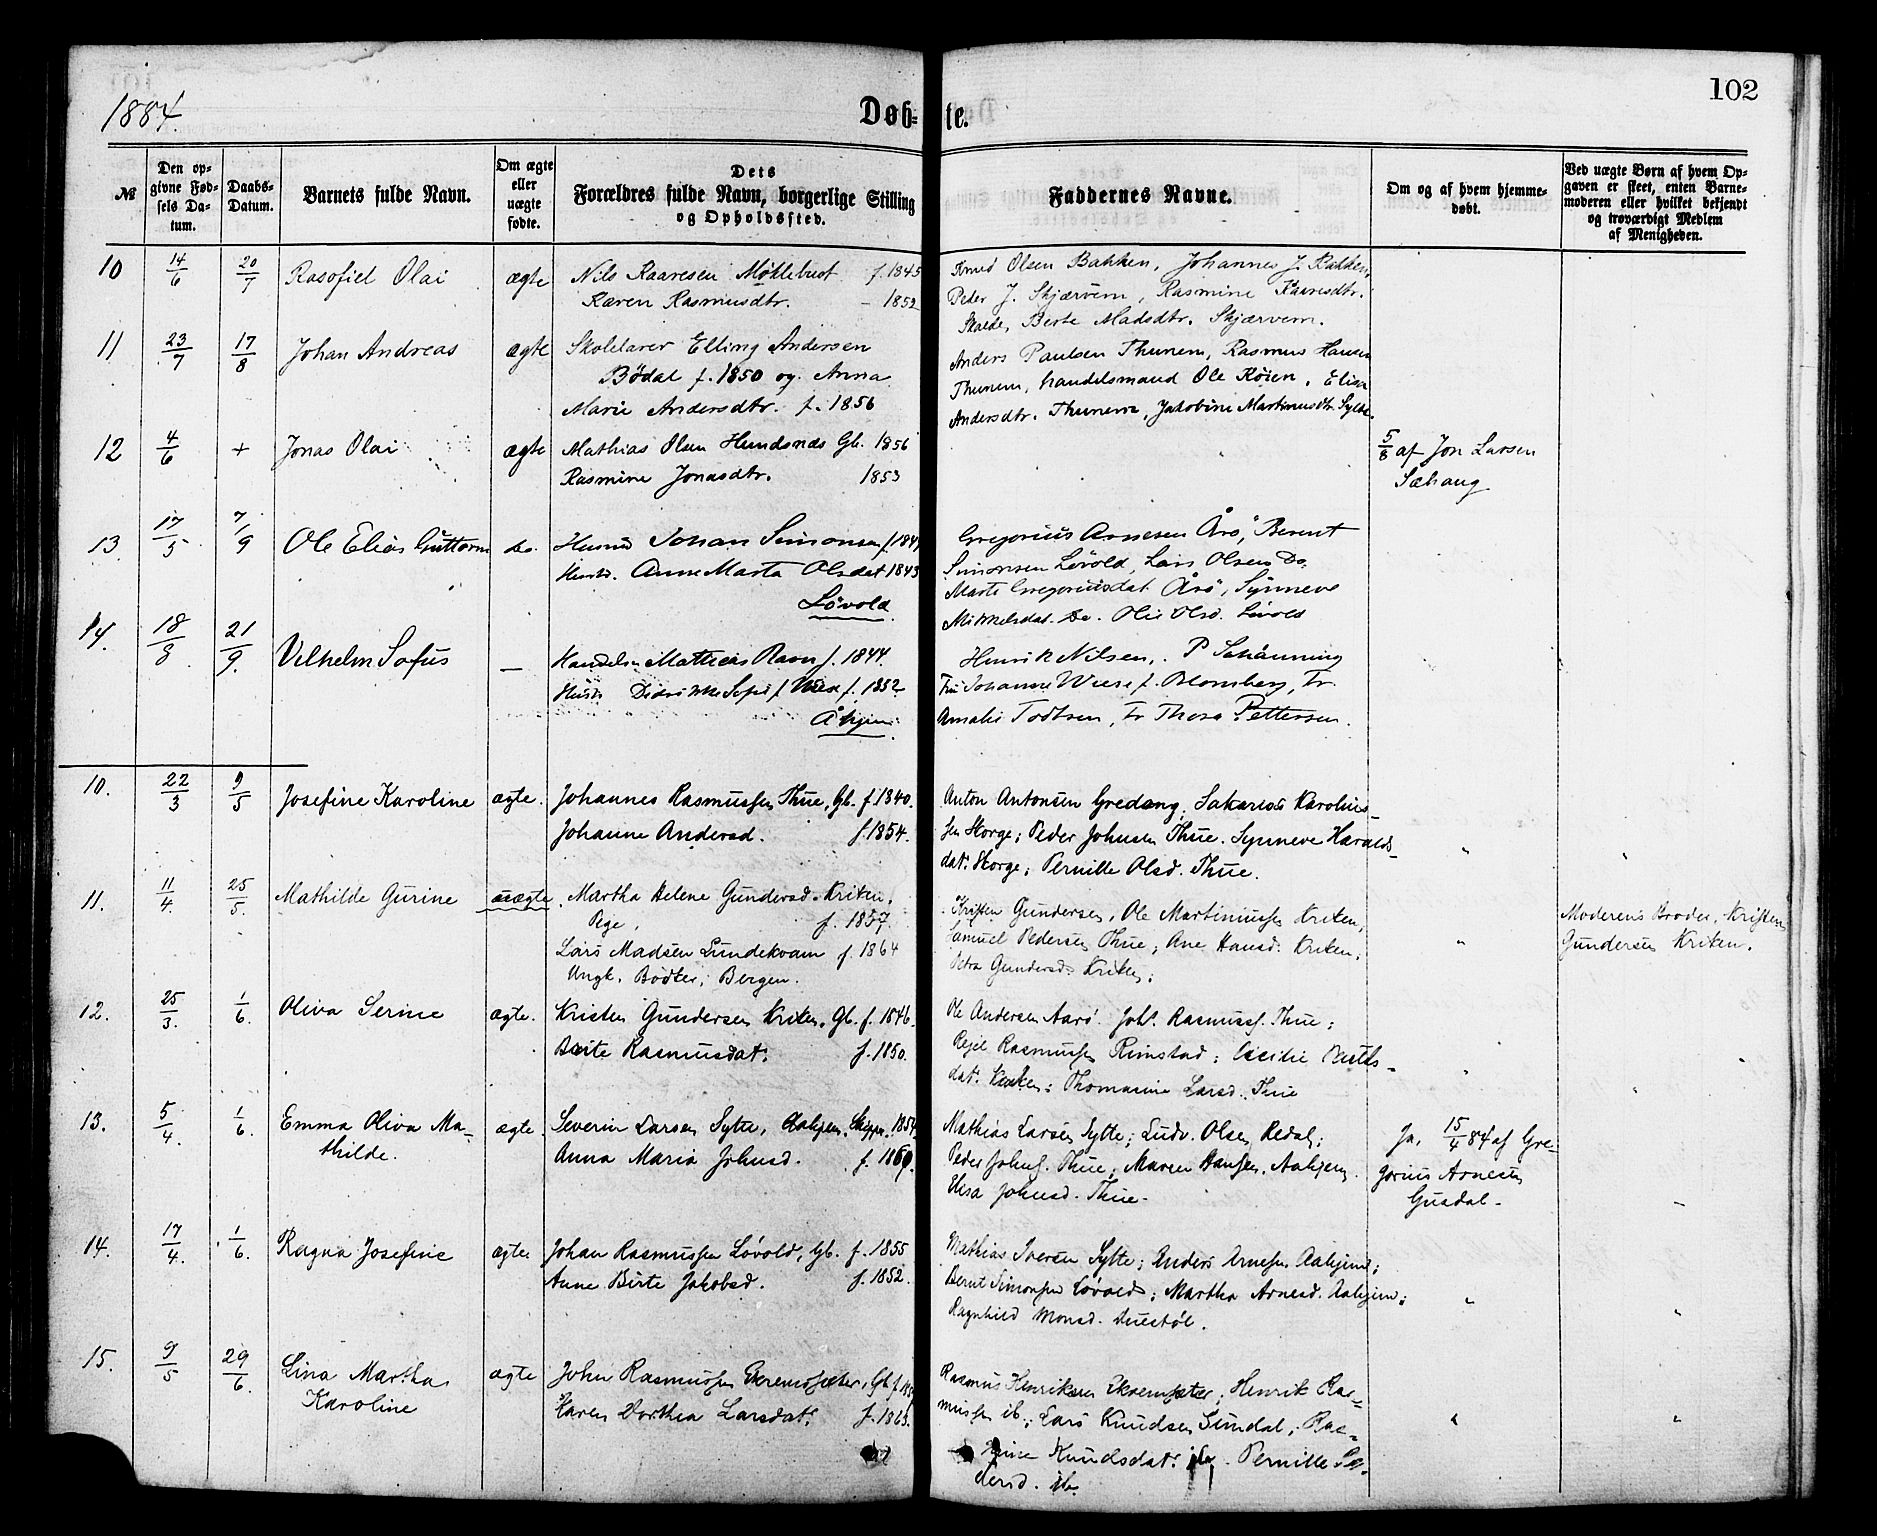 102
1884.
Døb-te.
№
Den opgivne Fødsels Datum.
Daabs-Datum.
Barnets fulde Navn.
Om ægte eller uægte fødte.
Dets Forældres fulde Navn, borgerlige Stilling og Opholdssted.
Faddernes Navne.
Om og af hvem hjemmedøbt.
Ved uægte Børn af hvem Opgaven er skeet, enten Barnemoderen eller hvilket bekjendt og troværdigt Medlem af Menigheden.
10 14/6 20/7 Rasofiel Olai ægte Nils Kaaresen Møklebust f. 1845 Knud Olsen Bakken, Johannes J. Bakken,
Karen Rasmusdtr. - 1852 Peder J. Skjærvem, Rasmine
Berte Madsdtr. Skjærvem.
11 23/7 17/8 Johan Andreas ægte Skolelærer Elling Andersen Anders Paulsen Thunem, Rasmus Hansen
Bødal f. 1850 og Anna Thunem, handelsmand Ole Røsen, Elisa
Marie Andersdtr. f. 1856 Andersdtr. Thunem, Jakobine Martinusdtr Sylte
12 4/6 + Jonas Olai ægte Mathias Olsen Hundsnæs Gb. 1856 5/8 af Jon Larsen
Rasmine Jonasdtr. 1853 Sæhaug
13 17/5 7/9 Ole Elias Guttorm do. Husmd Johan Simonsen f. Gregorius Arnesen Årø, Berent
Hustr. Anne Marta Olsdat 1843 Simonsen Løvold, Lars Olsen Do.
Løvold Marte Gregoriusdat Årø, Synneve
Mikkelsdat. Do. Olie Olsd. Løvold
14. 18/8 21/9. Vilhelm Sofus — Handelsm Mathias Ravn f. 1844. Henrik Nilsen, P Schänning
Hustr Didrikke Sofie f. Wiese f. 1852 Fru Johanne Wiese f. Blomberg, Fr.
Åhjem. Amalie Todtsen, Fr Thora Pettersen.
10. 22/3 9/5 Josefine Karoline ægte. Johannes Rasmussen Thue, Gb. f. 1840. Anton Antonsen Gredang, Sakarias Karolius-
Johanne Andersd. f. 1854. sen Horge; Peder Johnsen Thue. Synneve Haralds-
dat. Horge; Pernille Olsd. Thue. " "
11. 11/4. 25/5. Mathilde Gurine uægte. Martha Helene Gundersd. Kriken, Kristen Gundersen, Ole Martinussen Kriken, Moderens Broder, Kristen
Pige, f. 1857. Samuel Pedersen Thue; Ane Hansd. Kriken; " Gundersen Kriken.
Lars Madsen Lundekvam f. 1864 Petra Gundersd. Kriken;
Ungk. Bødker; Bergen.
12. 25/3. 1/6. Oliva Serine ægte. Kristen Gundersen Kriken, Gb. f. 1846. Ole Andersen Aarø. Joh. Rasmuss. Thue;
Berte Rasmusdat. f. 1850. Rasmussen Rimstad; Cecilie
dat. Kriken; Thomasine Larsd. Thue " "
13. 5/4. 1/6. Emma Oliva Ma- ægte. Severin Larsen Sylte, Aahjem. Skipper. Mathias Larsen Sylte; Ludv. Olsen Redal; Ja, 15/4 84 af Gre-
thilde. Anna Maria Johnsd. f. Peder Johns. Thue, Maren Hansen, Aahjem. gorius Arnesen
Elisa Johnsd. Thue. Gusdal. -
14. 17/4. 1/6. Ragna Josefine ægte. Johan Rasmussen Løvold, Gb. f. 1855 Mathias Iversen Sylte; Anders Arnesen Aahjem;
Anne Birte Jakobsd. f. 1852. Bernt Simonsen Løvold; Martha Arnesd. Aahjem; " "
Ragnhild Monsd.
15. 9/5 29/6. Lina Martha ægte John Rasmussen Ekremsæter, Gb. f. Rasmus Henriksen Ekremsæter, Henrik Ras-
Karoline Karen Dorthea Larsdat. f. 1863. mussen ib.; Lars Knudsen Sundal, Ras- " "
mine Knudsdat. ib. Pernille
dersd. ib.